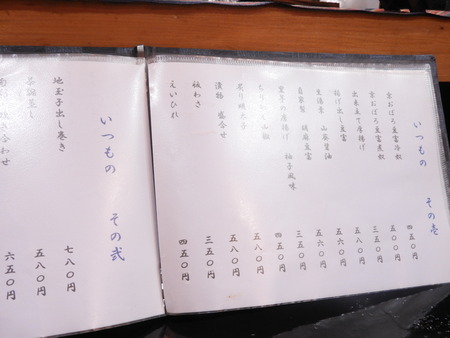 いつもの その壱
京おぼろ豆富冷奴 四五〇円
京おぼろ豆富煮奴 五〇〇円
出来立て厚揚げ 三五〇円
揚げ出し豆富 五八〇円
生湯葉 山葵醤油 五六〇円
自家製 胡麻豆富 五六〇円
里芋の唐揚げ 柚子風味 五三〇円
ちりめん山椒 四五〇円
炙り明太子 五八〇円
漬物 盛合せ 五八〇円
板わさ 三五〇円
えいひれ 四五〇円
いつもの その弐
地玉子出し巻き 七八〇円
茶碗蒸し 五八〇円
炊き合わせ 六五〇円